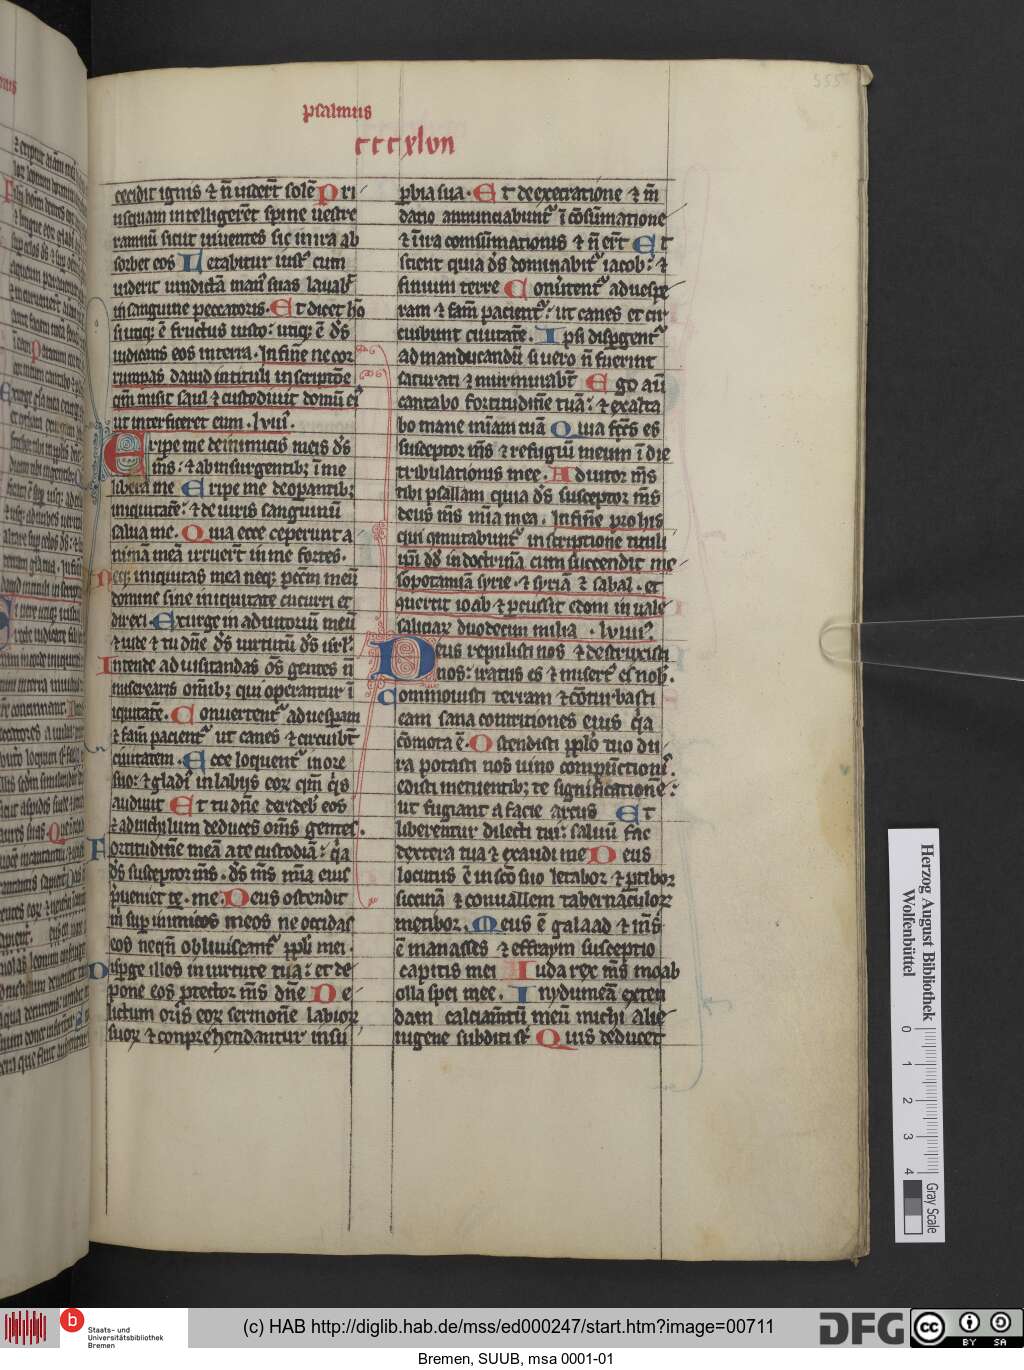 psalmus
cccxlvii
555
cecidit ignis ⁊ ñ vider̃t solẽ Pri
usquam intelligerẽt spine vestre
ramnũ sicut viventes sic in ira ab
sorbet eos Letabitur iustꝰ cum
viderit vindictã manꝰ suas lavabt̃
in sanguine peccatoris. Et dicet hõ
si utiqꝫ ẽ fructus iusto: utiqꝫ ẽ ds̃
iudicans eos in terra. In fine ne cor
rumpas david in tituli inscriptõe
qñ misit saul ⁊ custodivit domũ eiꝰ
ut interficeret eum. lviii.
Eripe me de inimicis meis ds̃
ms̃: ⁊ ab insurgentibꝫ ĩ me
libera me Eripe me de opantibꝫ
iniquitatẽ: ⁊ de viris sanguinũ
salva me. Quia ecce ceperunt a
nimã meã irruert̃ in me fortes.
Neqꝫ iniquitas mea neqꝫ pccm̃ meũ
domine sine iniquitate cucurri et
direxi. Exurge in adiutoriũ meũ
⁊ vide ⁊ tu dñe ds̃ virtutũ ds̃ isrl̃
Intende ad visitandas os̃ gentes ñ
miserearis om̃ibꝫ qui operantur ĩ
iquitatẽ. Convertentꝰ ad vespam
⁊ famẽ pacientꝰ ut canes ⁊ circuibt̃
civitatem. Ecce loquentꝰ in ore
suo: ⁊ gladiꝰ in labiis eoꝝ qm̃ qis
audivit Et tu dñe deridebꝰ eos
⁊ ad nichilum deduces om̃s gentes.
Fortitudinẽ meã a te custodiã: qa
ds̃ susceptor ms̃. ds̃ ms̃ mĩa eius
pveniet te. me. Deus ostendit
m̃ sup inimicos meos ne occidas
eos neqñ obliviscantꝰ ppli mei.
Dispge illos in virtute tua: et de
pone eos ptector ms̃ dñe De
lictum oris eoꝝ sermonẽ labioꝝ
suoꝝ ⁊ conprehendantur in su
pbia sua. Et de execratione ⁊ m̃
dacio annunciabuntꝰ ĩ cõsũmatione
⁊ ĩ ira comsũmationis ⁊ ñ ert̃ Et
scient quia ds̃ dominabitꝰ iacob: ⁊
finium terre Convtentꝰ ad vespe
ram ⁊ famẽ pacientꝰ: ut canes et cir
cuibunt civitatẽ. Ipsi dispgentꝰ
ad manducandũ si vero ñ fuerint
saturati ⁊ murmurabt̃ Ego aũ
cantabo fortitudinẽ tuã: ⁊ exalta
bo mane miãm tuã Quia fcs̃ es
susceptor ms̃ ⁊ refugiũ meum ĩ die
tribulationis mee. Adiutor ms̃
tibi psallam quia ds̃ susceptor ms̃
deus ms̃ mĩa mea. In finẽ pro his
qui ꝯmutabuntꝰ in scriptione tituli
ipĩ dd̃ in doctrinã cum succendit me
sopotamiã syrie. ⁊ syriã ⁊ sabal. et
ꝯvertit ioab ⁊ pcussit edom in valle
saliciaꝝ duodecim milia. lviiii.
Deus repulisti nos ⁊ destruxisti
nos: iratus es ⁊ misertꝰ es nob.
Commovisti terram ⁊ cõturbasti
eam sana contritiones eius qa
cõmota ẽ. Ostendisti pplo tuo du
ra potasti nos vino compũctionis.
Dedisti metuentibꝫ te significationẽ:
ut fugiant a facie arcus Et
liberentur dilecti tui: salvũ fac
dextera tua ⁊ exaudi me Deus
locutus ẽ in sco suo letaboꝝ ⁊ ptiboꝝ
siccimã ⁊ convallem tabernaculoꝝ
metiboꝝ. Meus ẽ galaad ⁊ ms̃
ẽ manasses ⁊ effraym susceptio
capitis mei Iuda rex ms̃ moab
olla spei mee. In ydumeã exten
dam calciam̃tũ meũ michi alie
nigene subditi st̃ Quis deducet
Herzog August Bibliothek
Wolfenbüttel
0 1 2 3 4
Gray Scale
Staats- und
Universitätsbibliothek
Bremen
(c) HAB http://diglib.hab.de/mss/ed000247/start.htm?image=00711
DFG
cc BY SA
Bremen, SUUB, msa 0001-01